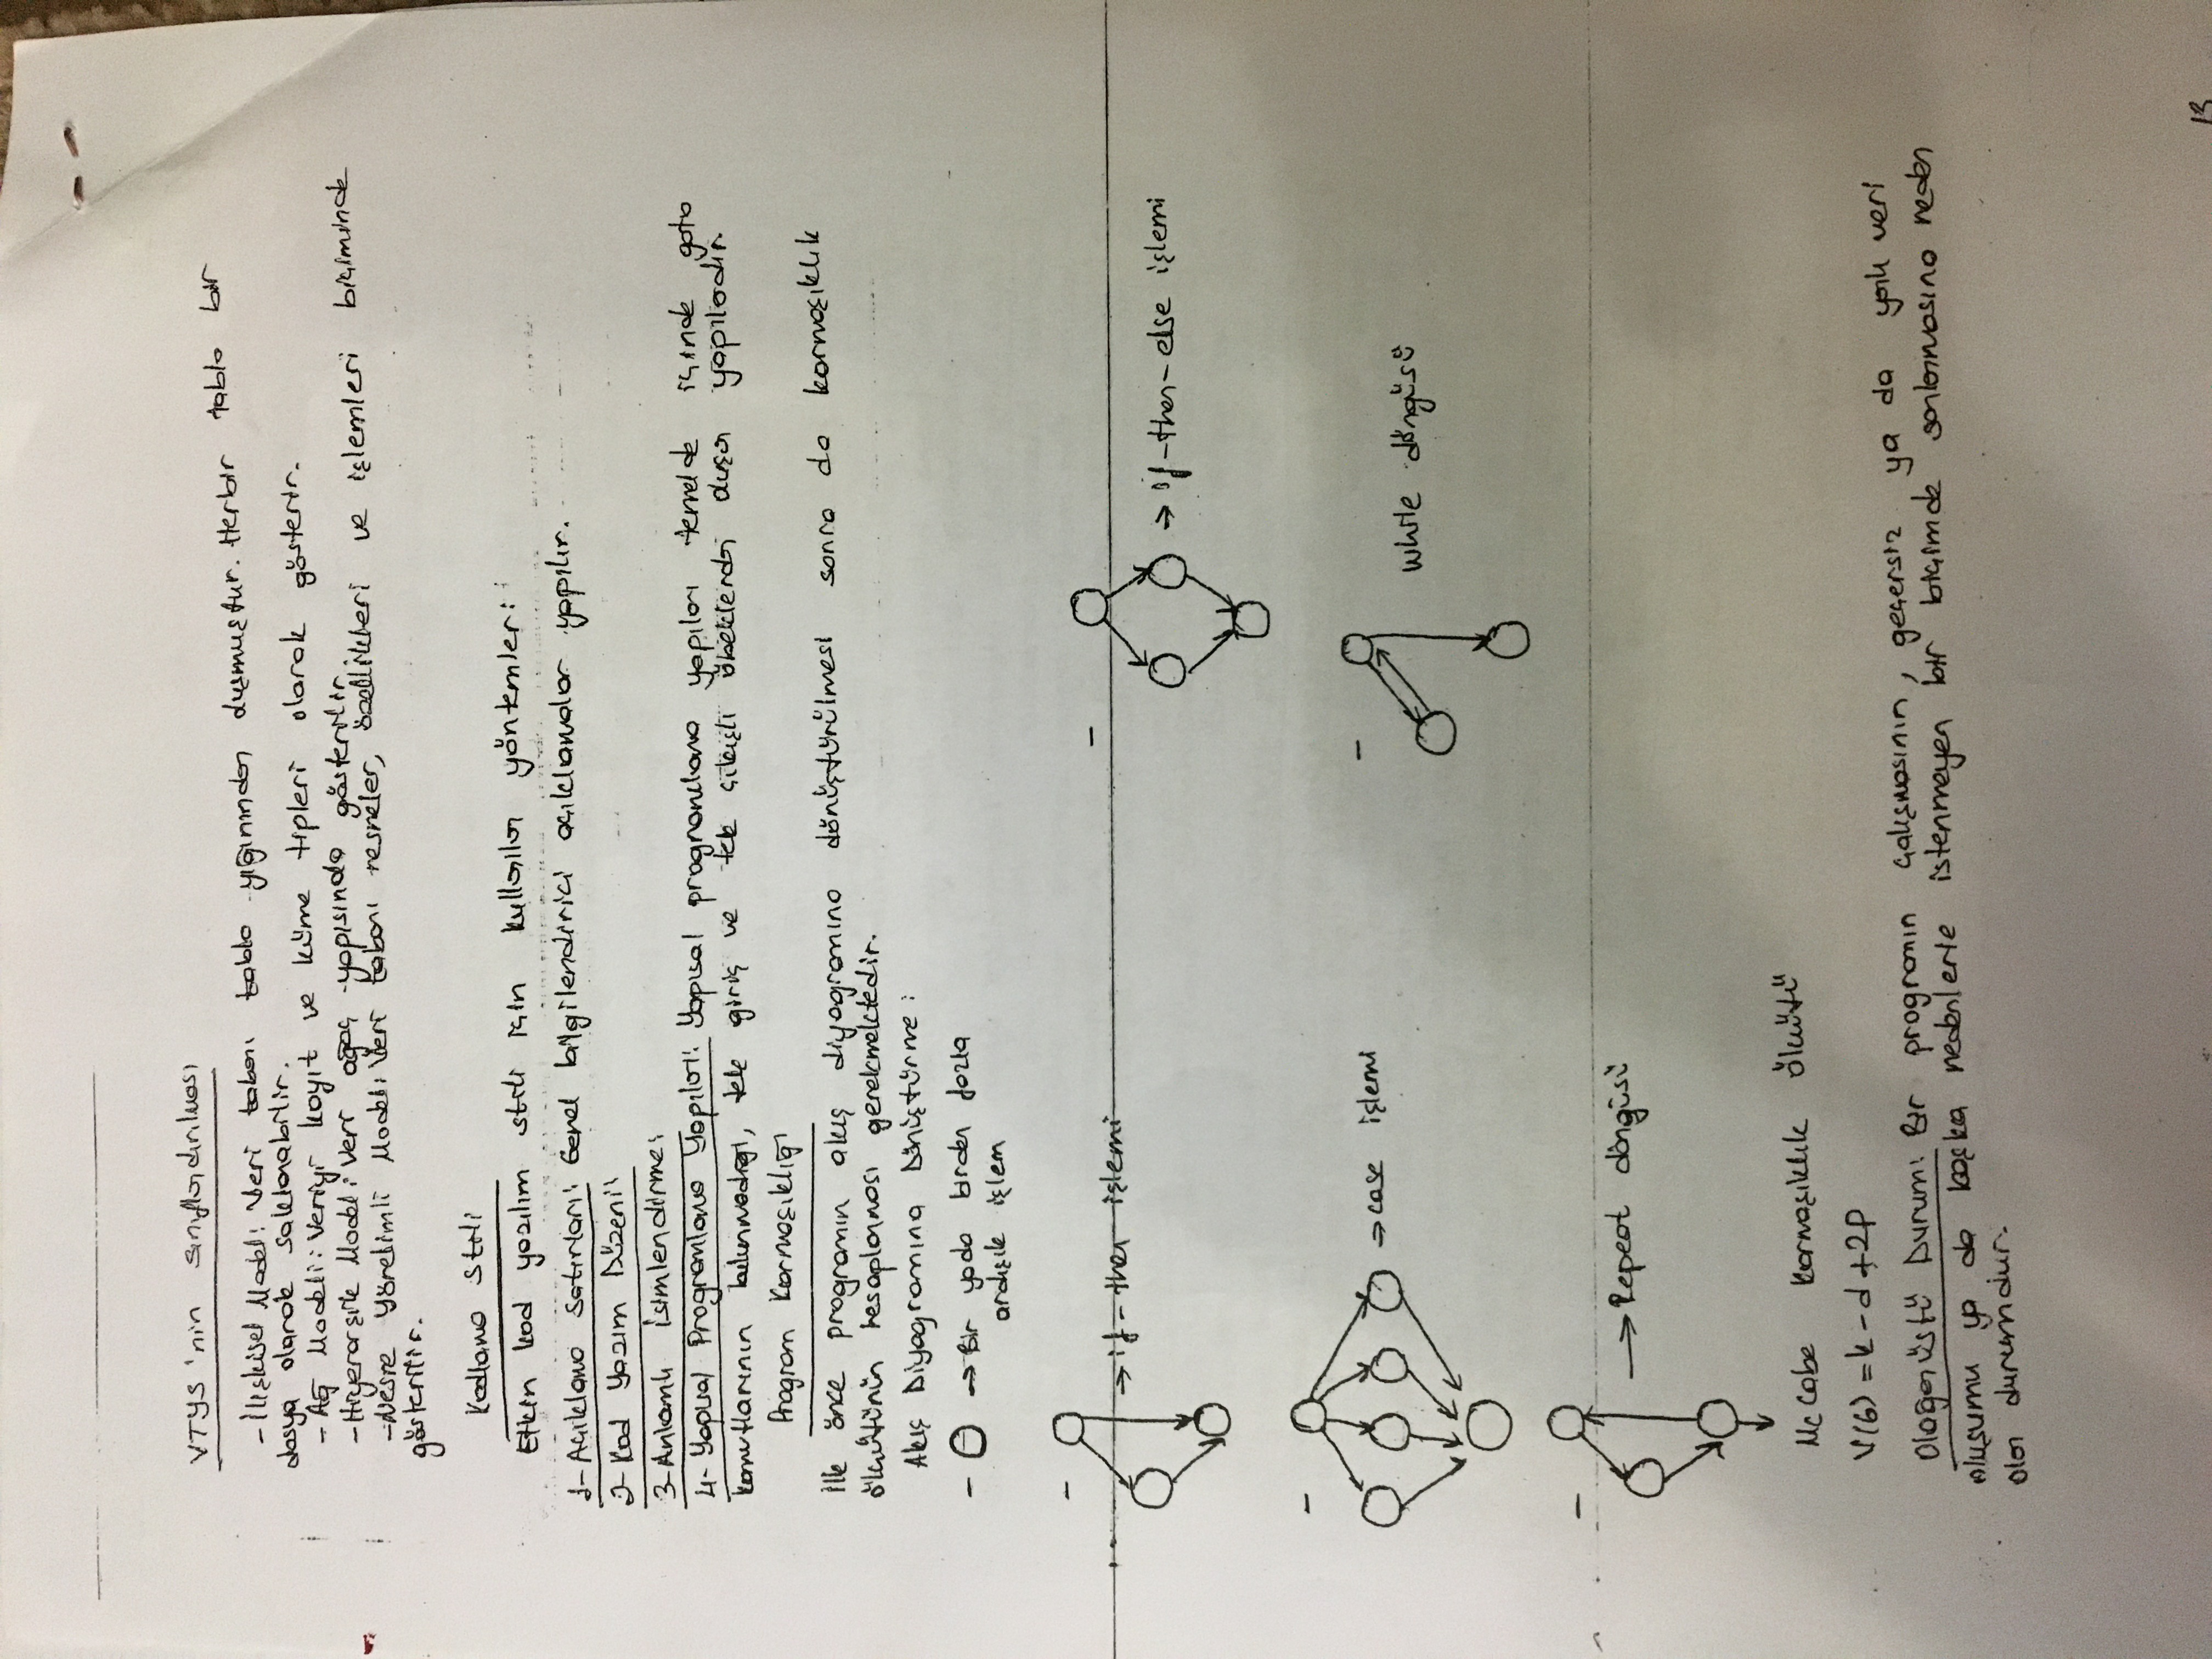 VTYS 'nin sınıflandırılması
-İlişkisel Model: Veri tabanı tablo yığınından oluşmuştur. Herbir tablo bir
dosya olarak saklanabilir.
-Ağ Modeli: Veriyi kayıt ve küme tipleri olarak gösterir.
-Hiyerarşik Model: Veri ağaç yapısında gösterilir.
-Nesne Yönelimli Model: Veri tabanı nesneler, özellikleri ve işlemleri biçiminde
gösterilir.
Kodlama Stili
Etkin kod yazılım stili için kullanılan yöntemler:
1-Açıklama Satırları: Genel bilgilendirici açıklamalar yapılır.
2-Kod Yazım Düzeni:
3-Anlamlı İsimlendirme:
4-Yapısal Programlama Yapıları: Yapısal programlama yapıları temelde içinde goto
komutlarının bulunmadığı, tek giriş ve tek çıkışlı öbeklerden oluşan yapılardır.
Program Karmaşıklığı
İlk önce programın akış diyagramına dönüştürülmesi sonra da karmaşıklık
ölçütünün hesaplanması gerekmektedir.
Akış Diyagramına Dönüştürme:
- O → Bir yada birden fazla
ardışık işlem
- → if-then işlemi
- → if-then-else işlemi
- → case işlemi
- While döngüsü
- → Repeat döngüsü
McCabe Karmaşıklık Ölçütü
V(G) = k-d+2p
Olağanüstü Durum: Bir programın çalışmasının, geçersiz ya da yanlı veri
oluşumu ya da başka nedenlerle istenmeyen bir biçimde sonlanmasına neden
olan durumdur.
13